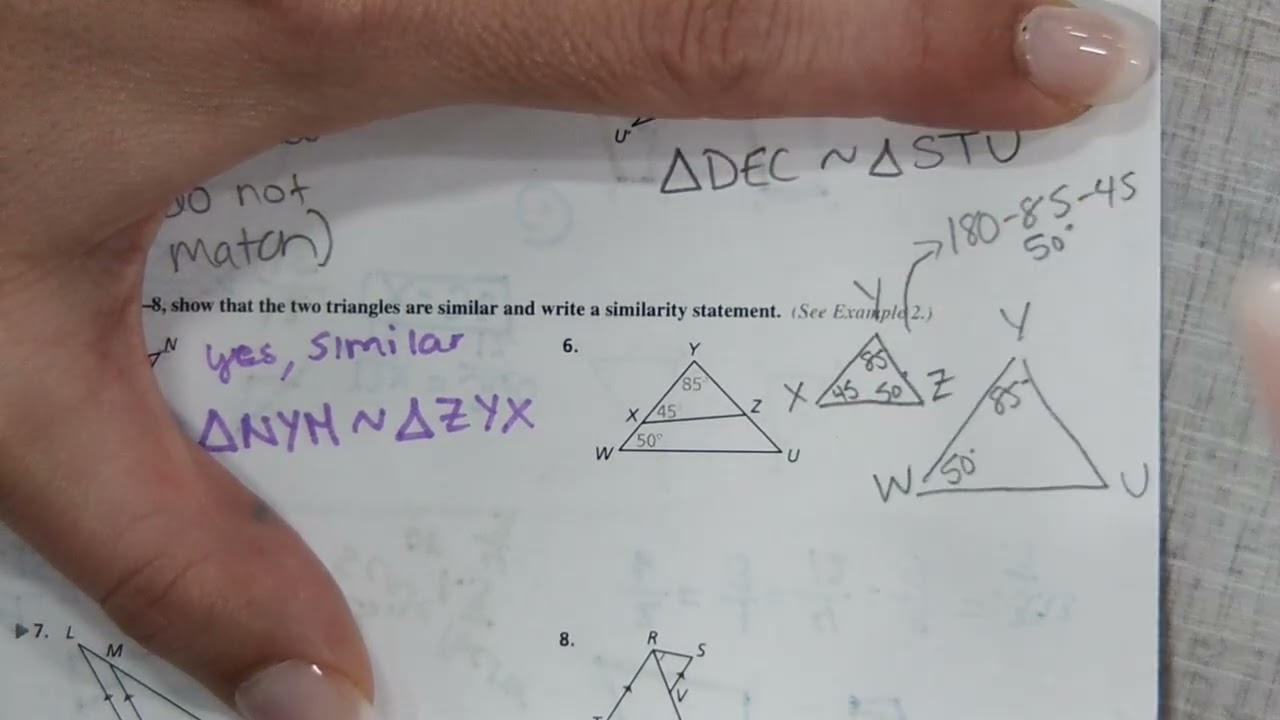 U
△DEC ~ △STU
not
match)
180-85-45
50°
-8, show that the two triangles are similar and write a similarity statement. (See Example 2.)
N
yes, similar
△NYM ~ △ZYX
6.
Y
85°
X 45° Z
50°
W U
Y
85
X 45 50 Z
Y
85°
W 50° U
7. L
M
8.
R
S
V